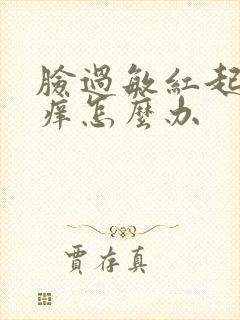 臉過敏紅起
癢怎麼办
賈存真